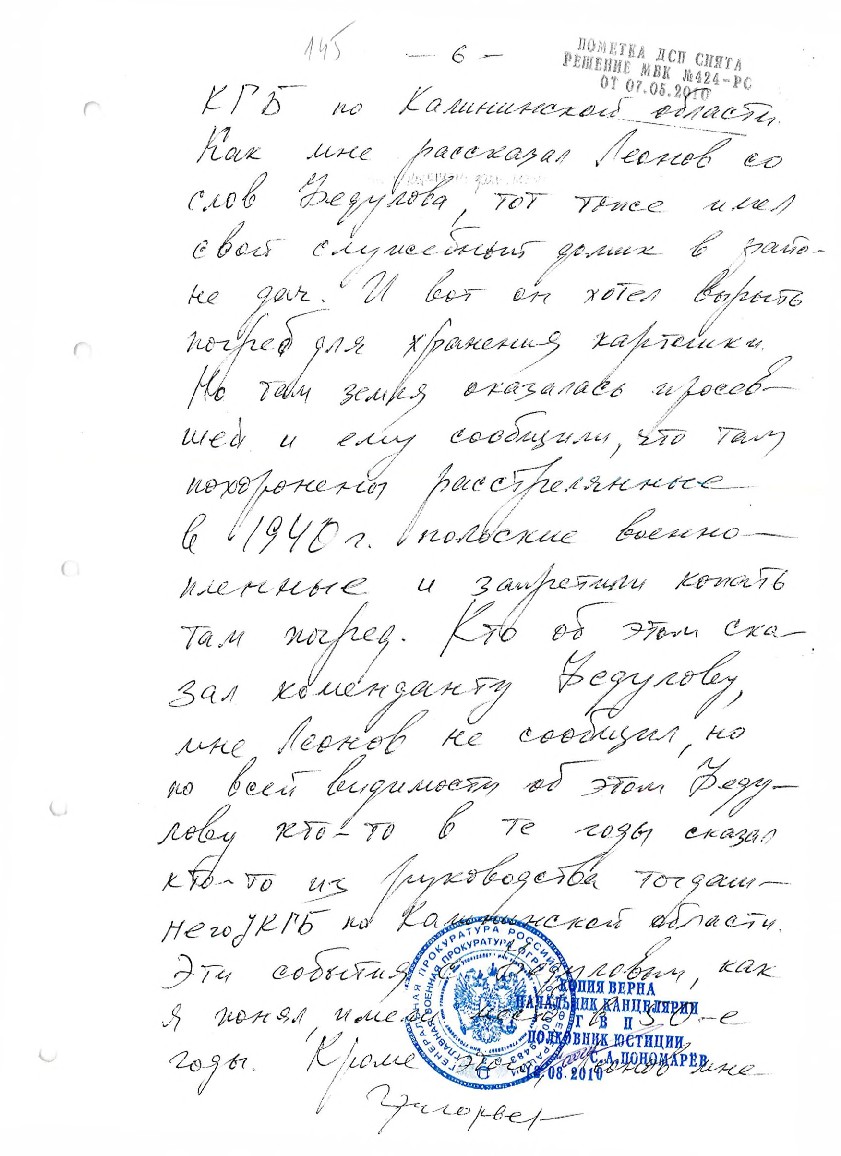 145
— 6 —
ПОМЕТКА ДСП СНЯТА
РЕШЕНИЕ МВК №424-РС
ОТ 07.05.2010
КГБ по Калининской области.
Как мне рассказал Леонов со
слов Бедулова, тот тоже имел
свой служебный домик в райо-
не дач. И вот он хотел вырыть
погреб для хранения картошки.
Но там земля оказалась просев-
шей и ему сообщили, что там
похоронены расстрелянные
в 1940 г. польские военно-
пленные и запретили копать
там погреб. Кто об этом ска-
зал коменданту Бедулову,
мне Леонов не сообщил, но
по всей видимости об этом Беду-
лову кто-то в те годы сказал
кто-то из руководства тогдаш-
него УКГБ по Калининской области.
Эти события с Бедуловым, как
я понял, имели место в 50-е
годы. Кроме этого, Леонов мне
ГЕНЕРАЛЬНАЯ ПРОКУРАТУРА РОССИЙСКОЙ ФЕДЕРАЦИИ
ГЛАВНАЯ ВОЕННАЯ ПРОКУРАТУРА
КОПИЯ ВЕРНА
НАЧАЛЬНИК КАНЦЕЛЯРИИ
Г В П
ПОЛКОВНИК ЮСТИЦИИ
С.А.ПОНОМАРЕВ
.08.2010